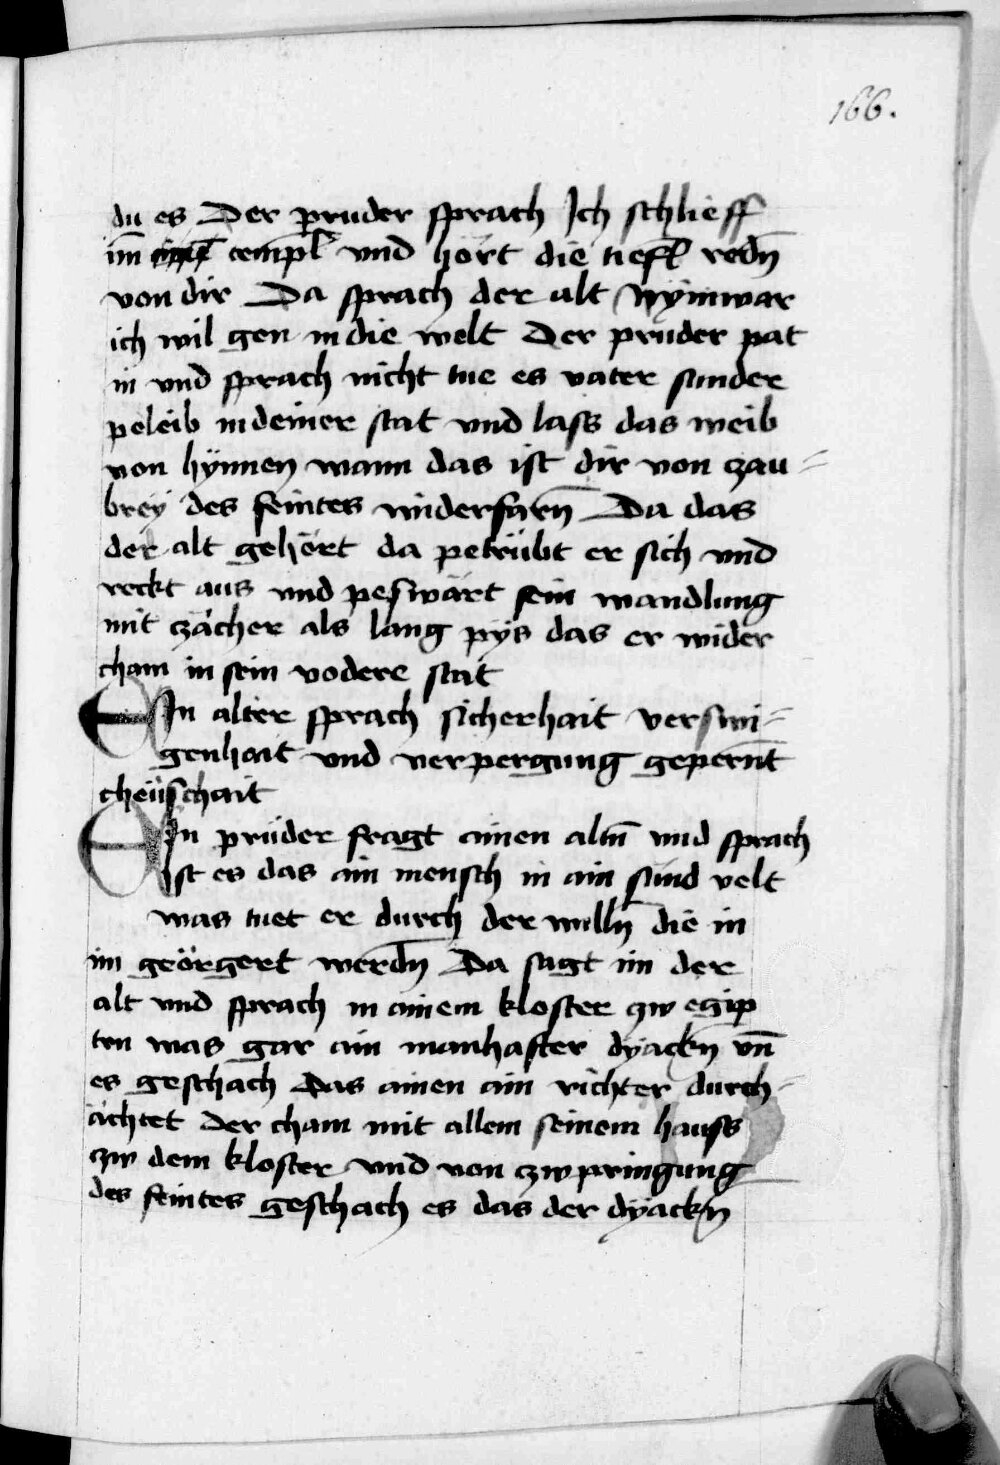 166.
du es Der pruder sprach Ich schlieff
im̄ templ̄ vnd hört die tiefl̄ redn̄
von dir Da sprach der alt Nymwar
ich wil gen in die welt Der pruder pat
in vnd sprach nicht tue es vater sunder
peleib in deiner stat vnd lass das weib
von hÿnnen wann das ist dir von zau=
brey des feintes widerfarn̄ Da das
der alt gehört da petrübt er sich vnd
reckt aus vnd peswärt sein wandlung
mit zächer als lang pÿs das er wider
cham in sein vodere stat
Ein alter sprach sicherhait verswi=
genhait vnd verpergung gepern̄t
cheüschait
Ein prüder fragt ainen altn̄ vnd sprach
Ist es das ain mensch in ain sünd velt
was tuet er durch der willn̄ die in
im geörgert werdn̄ Da sagt im der
alt vnd sprach in ainem kloster zw egip
ten was gar ain manhafter dÿackn̄ vn̄
es geschach Das ainen ain richter durch=
ächtet Der cham mit allem seinem hauss
zw dem kloster vnd von zwpringung
des feintes geschach es das der dÿackn